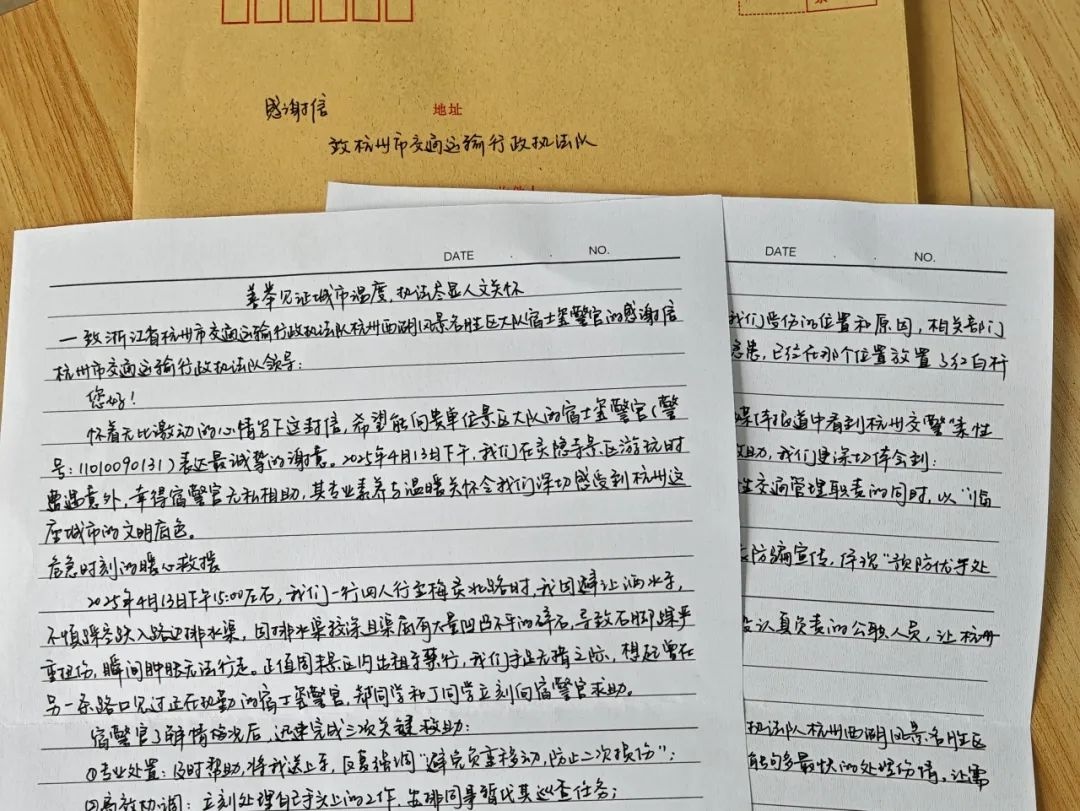 票
感谢信
地址
致杭州市交通运输行政执法队
DATE . . NO.
善举见证城市温度，执法尽显人文关怀
—致浙江省杭州市交通运输行政执法队杭州西湖风景名胜区大队宿士玺警官的感谢信
杭州市交通运输行政执法队领导：
您好！
怀着无比激动的心情写下这封信，希望能向贵单位景区大队的宿士玺警官（警
号：11010090131）表达最诚挚的谢意。2025年4月13日下午，我们在灵隐寺景区游玩时
遭遇意外，幸得宿警官无私相助，其专业素养与温暖关怀令我们深切感受到杭州这
座城市的文明底色。
危急时刻的暖心救援
2025年4月13日下午15:00左右，我们一行四人行至梅灵北路时，我因避让洒水车，
不慎踩空跌入路边排水渠，因排水渠较深且渠底有大量凹凸不平的碎石，导致右脚踝严
重扭伤，瞬间肿胀无法行走。正值周末景区内出租车禁行，我们手足无措之际，想起曾在
另一条路口见过正在执勤的宿士玺警官，郝同学和丁同学立刻向宿警官求助。
宿警官了解情况后，迅速完成三次关键救助：
①专业处置：及时帮助，将我送上车，反复强调“避免负重移动，防止二次损伤”；
②高效协调：立刻处理自己手头上的工作，安排同事暂代其巡查任务；
DATE . . NO.
我们受伤的位置和原因，相关部门
急患，已经在那个位置放置了红白杆
媒体报道中看到杭州交警“柔性
救助，我们更深切体会到：
交通管理职责的同时，以“临
防骗宣传，伤没“预防优于处
认真负责的公职人员，让杭州
执法队杭州西湖风景名胜区
能够最快的处理伤情，让需